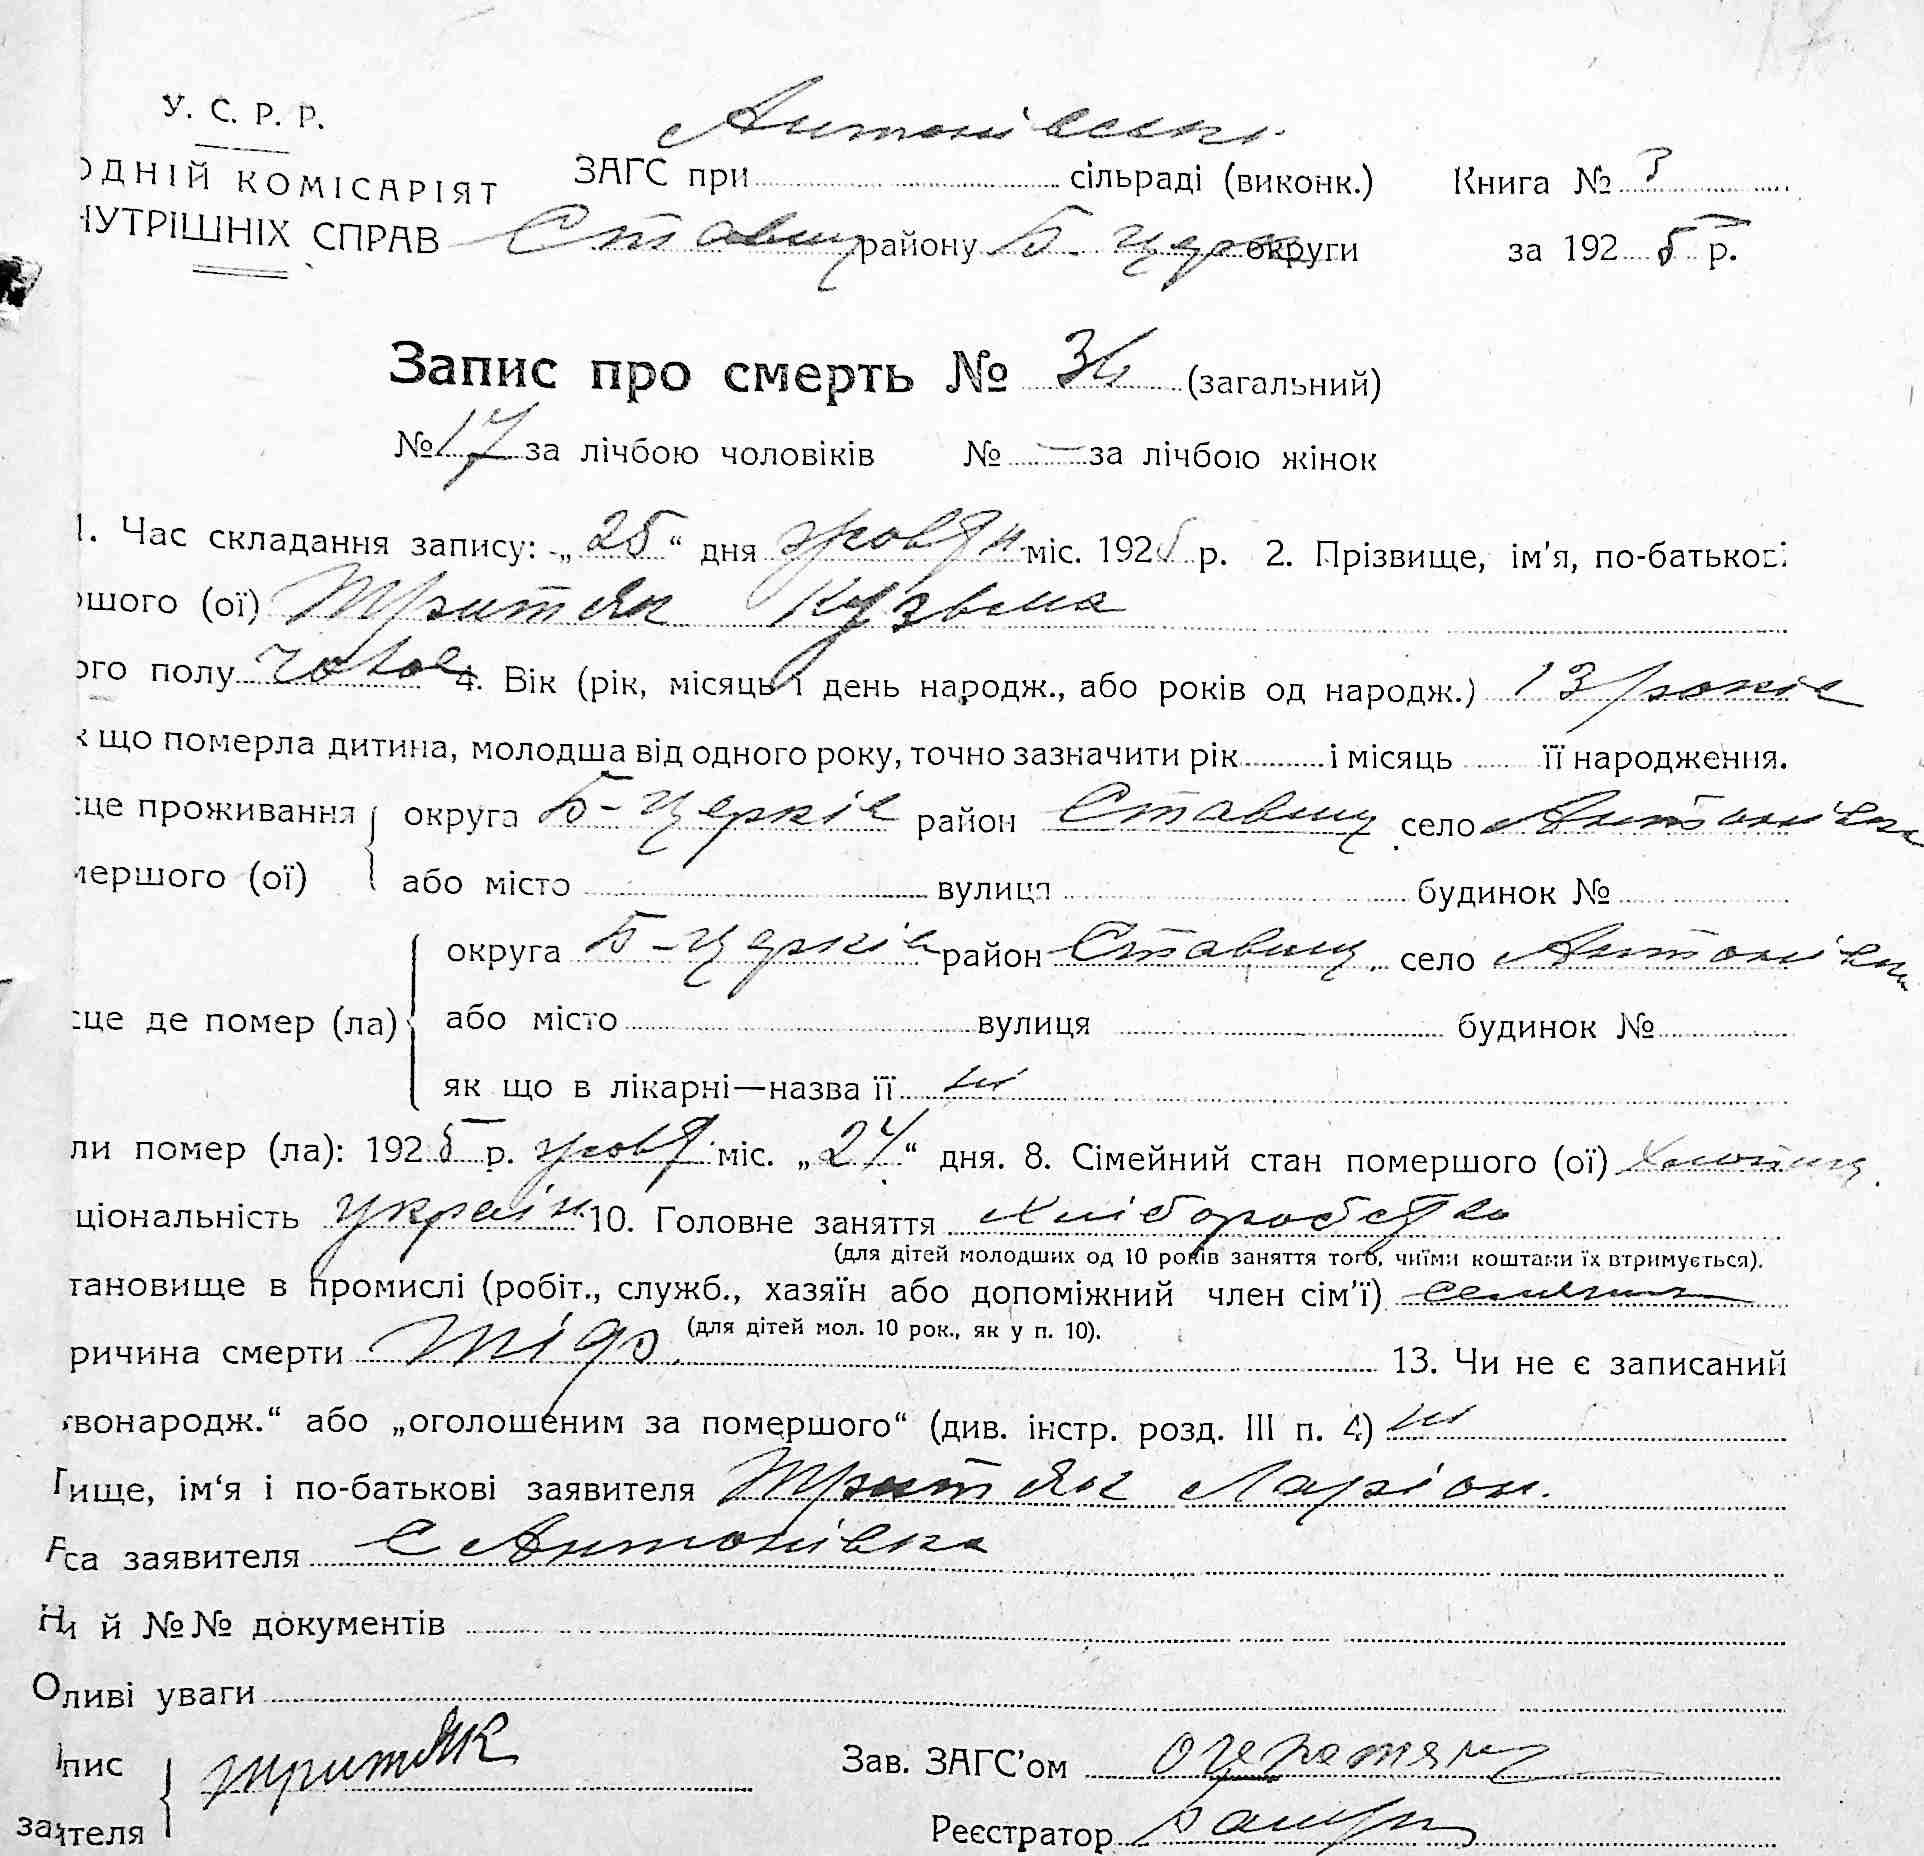 У. С. Р. Р.
ОДНІЙ КОМІСАРІЯТ
НУТРІШНІХ СПРАВ
Антонівськ.
ЗАГС при сільраді (виконк.) Книга № 3
Ставищ району Б. Церк округи за 1925 р.
Запис про смерть № 34 (загальний)
№ 17 за лічбою чоловіків № — за лічбою жінок
1. Час складання запису: „25“ дня міс. 1925 р. 2. Прізвище, ім'я, по-батькові
ршого (ої) Третяк Кузьма
ого полу чолов 4. Вік (рік, місяць і день народж., або років од народж.) 13 років
к що померла дитина, молодша від одного року, точно зазначити рік і місяць її народження.
сце проживання округа Б-Церків район Ставищ. село Антонівка
мершого (ої) або місто вулиця будинок №
округа Б-Церків район Ставищ. село Антонівка
сце де помер (ла) або місто вулиця будинок №
як що в лікарні—назва її ні
ли помер (ла): 1925 р. міс. „24“ дня. 8. Сімейний стан помершого (ої)
ціональність україн 10. Головне заняття хліборобство
(для дітей молодших од 10 років заняття того, чиїми коштами їх втримується).
тановище в промислі (робіт., служб., хазяїн або допоміжний член сім'ї)
(для дітей мол. 10 рок., як у п. 10).
ричина смерти 13. Чи не є записаний
твонародж.“ або „оголошеним за помершого“ (див. інстр. розд. III п. 4) ні
ище, ім'я і по-батькові заявителя Третяк Ларіон.
са заявителя с Антонівка
и й №№ документів
ливі уваги
пис
заятеля Третяк
Зав. ЗАГС'ом
Реєстратор